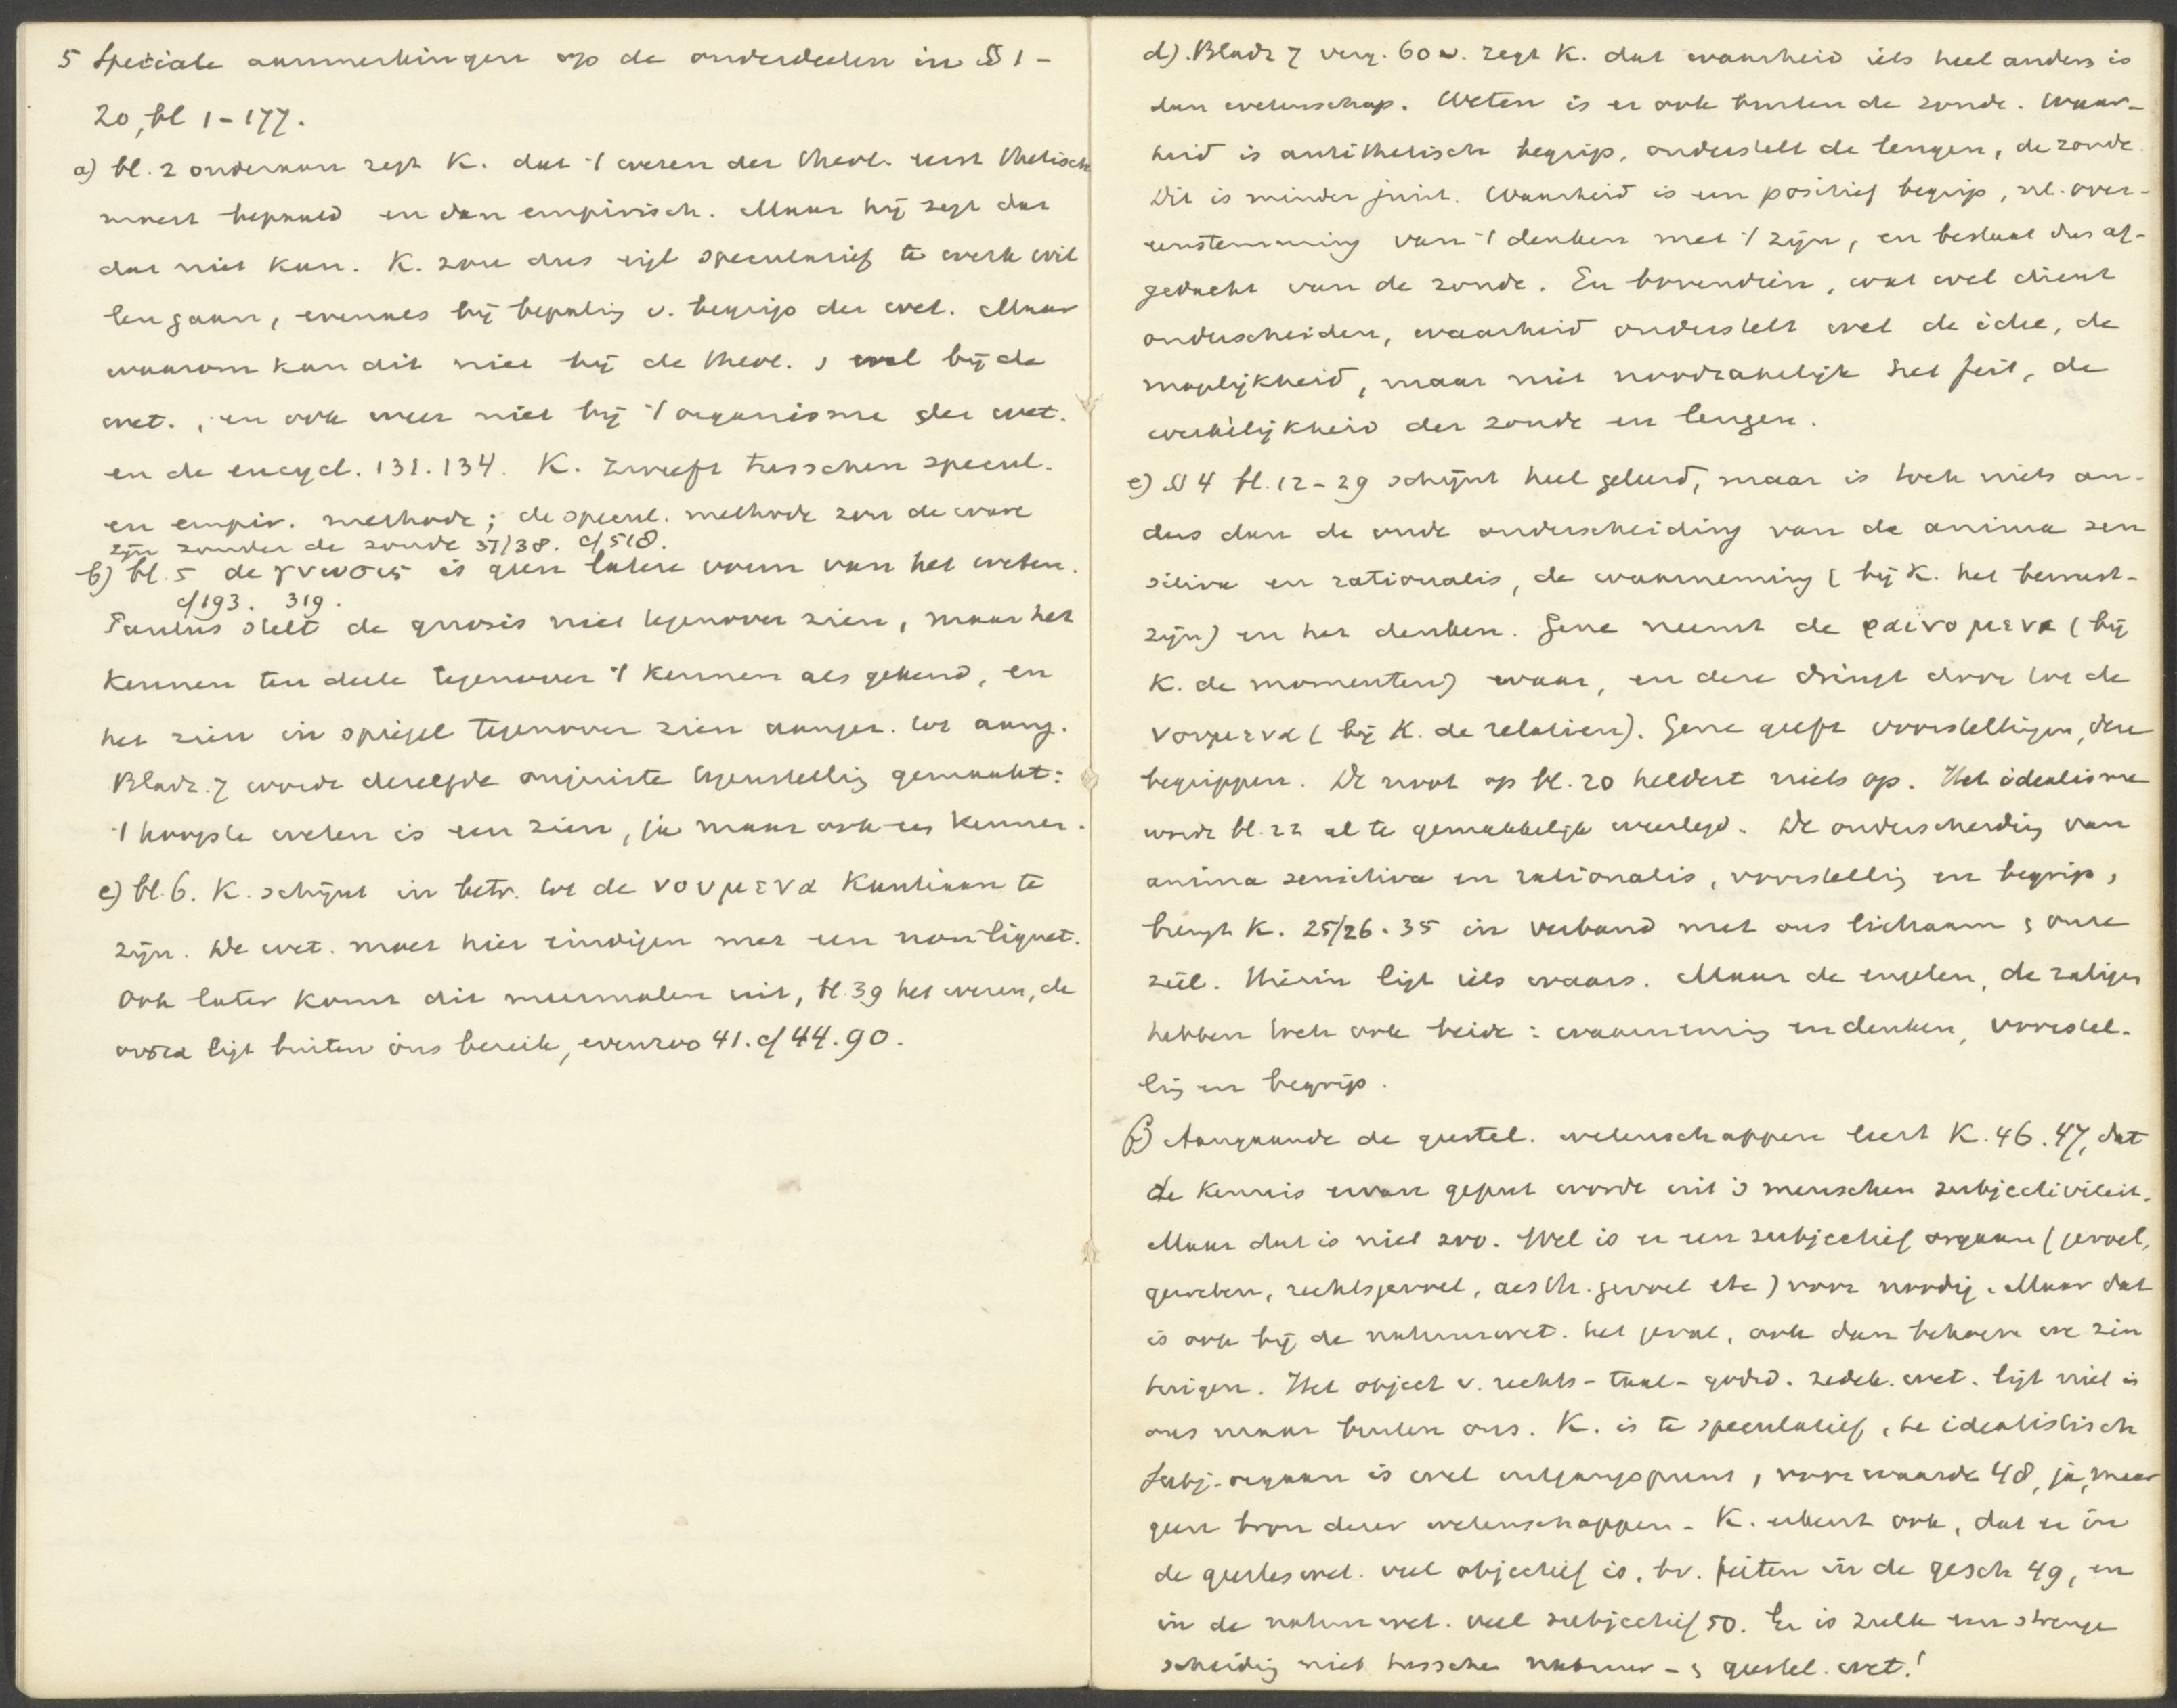 5 Speciale aanmerkingen op de onderdeelen in §§ 1 -
20, bl 1 - 177.
a) bl. 2 onderaan zegt K. dat 't wezen der theol. eerst thetisch
moest bepaald en dan empirisch. Maar hij zegt dat
dat niet kan. K. zou dus eigl speculatief te werk wil
len gaan, evenals bij bepaling v. begrip der wet. Maar
waarom kan dit niet bij de theol. , wel bij de
wet. , en ook weer niet bij 't organisme der wet.
en de encycl. 131. 134. K. zweeft tusschen specul.
en empir. methode; de specul. methode zou de ware
zijn zonder de zonde 37/38. cf 518.
b) bl. 5 de γνωσις is geen latere vorm van het weten.
cf 193. 319.
Paulus stelt de gnosis niet tegenover zien, maar het
kennen ten deele tegenover 't kennen als gekend, en
het zien in spiegel tegenover zien aangez. tot aang.
Bladz. 7 wordt dezelfde onjuiste tegenstelling gemaakt:
't hoogste weten is een zien, ja maar ook een kennen.
c) bl. 6. K. schijnt in betr. tot de νουμενα Kantiaan te
zijn. De wet. moet hier eindigen met een non liquet.
Ook later komt dit meermalen uit, bl. 39 het wezen, de
ουσια ligt buiten ons bereik, evenzoo 41. cf 44. 90.
d). Bladz 7 verg. 60 v. zegt K. dat waarheid iets heel anders is
dan wetenschap. Weten is er ook buiten de zonde. Waar-
heid is antithetisch begrip, onderstelt de leugen, de zonde.
Dit is minder juist. Waarheid is een positief begrip, nl. over-
eenstemming van 't denken met 't zijn, en bestaat dus af-
gedacht van de zonde. En bovendien, wat wel dient
onderscheiden, waarheid onderstelt wel de idee, de
mogelijkheid, maar niet noodzakelijk het feit, de
werkelijkheid der zonde en leugen.
e) § 4 bl. 12 - 29 schijnt heel geleerd, maar is toch niets an-
ders dan de oude onderscheiding van de anima sen
sitiva en rationalis, de waarneming (bij K. het bewust-
zijn) en het denken. Gene neemt de φαινομενα (bij
K. de momenten) waar, en deze dringt door tot de
νουμενα (bij K. de relatien). Gene geeft voorstellingen, deze
begrippen. De noot op bl. 20 heldert niets op. Het idealisme
wordt bl. 22 al te gemakkelijk weerlegd. De onderscheiding van
anima sensitiva en rationalis, voorstelling en begrip,
brengt K. 25/26. 35 in verband met ons lichaam & onze
ziel. Hierin ligt iets waars. Maar de engelen, de zaligen
hebben toch ook beide: waarneming en denken, voorstel-
ling en begrip.
f) Aangaande de geestel. wetenschappen leert K. 46. 47, dat
de kennis ervan geput wordt uit 's menschen subjectiviteit.
Maar dat is niet zoo. Wel is er een subjectief orgaan (gevoel,
geweten, rechtsgevoel, aesth. gevoel etc) voor noodig. Maar dat
is ook bij de natuurwet. het geval, ook dan behoeven we zin
tuigen. Het object v. rechts - taal - godsd. zedek. wet. ligt niet in
ons maar buiten ons. K. is te speculatief, te idealistisch
Subj. orgaan is wel uitgangspunt, voorwaarde 48, ja, maar
geen bron dezer wetenschappen. K. erkent ook, dat er in
de geesteswet. veel objectief is, bv. feiten in de gesch 49, en
in de natuurwet. veel subjectief 50. Er is zulk een strenge
scheiding niet tusschen natuur - & geestel. wet.!